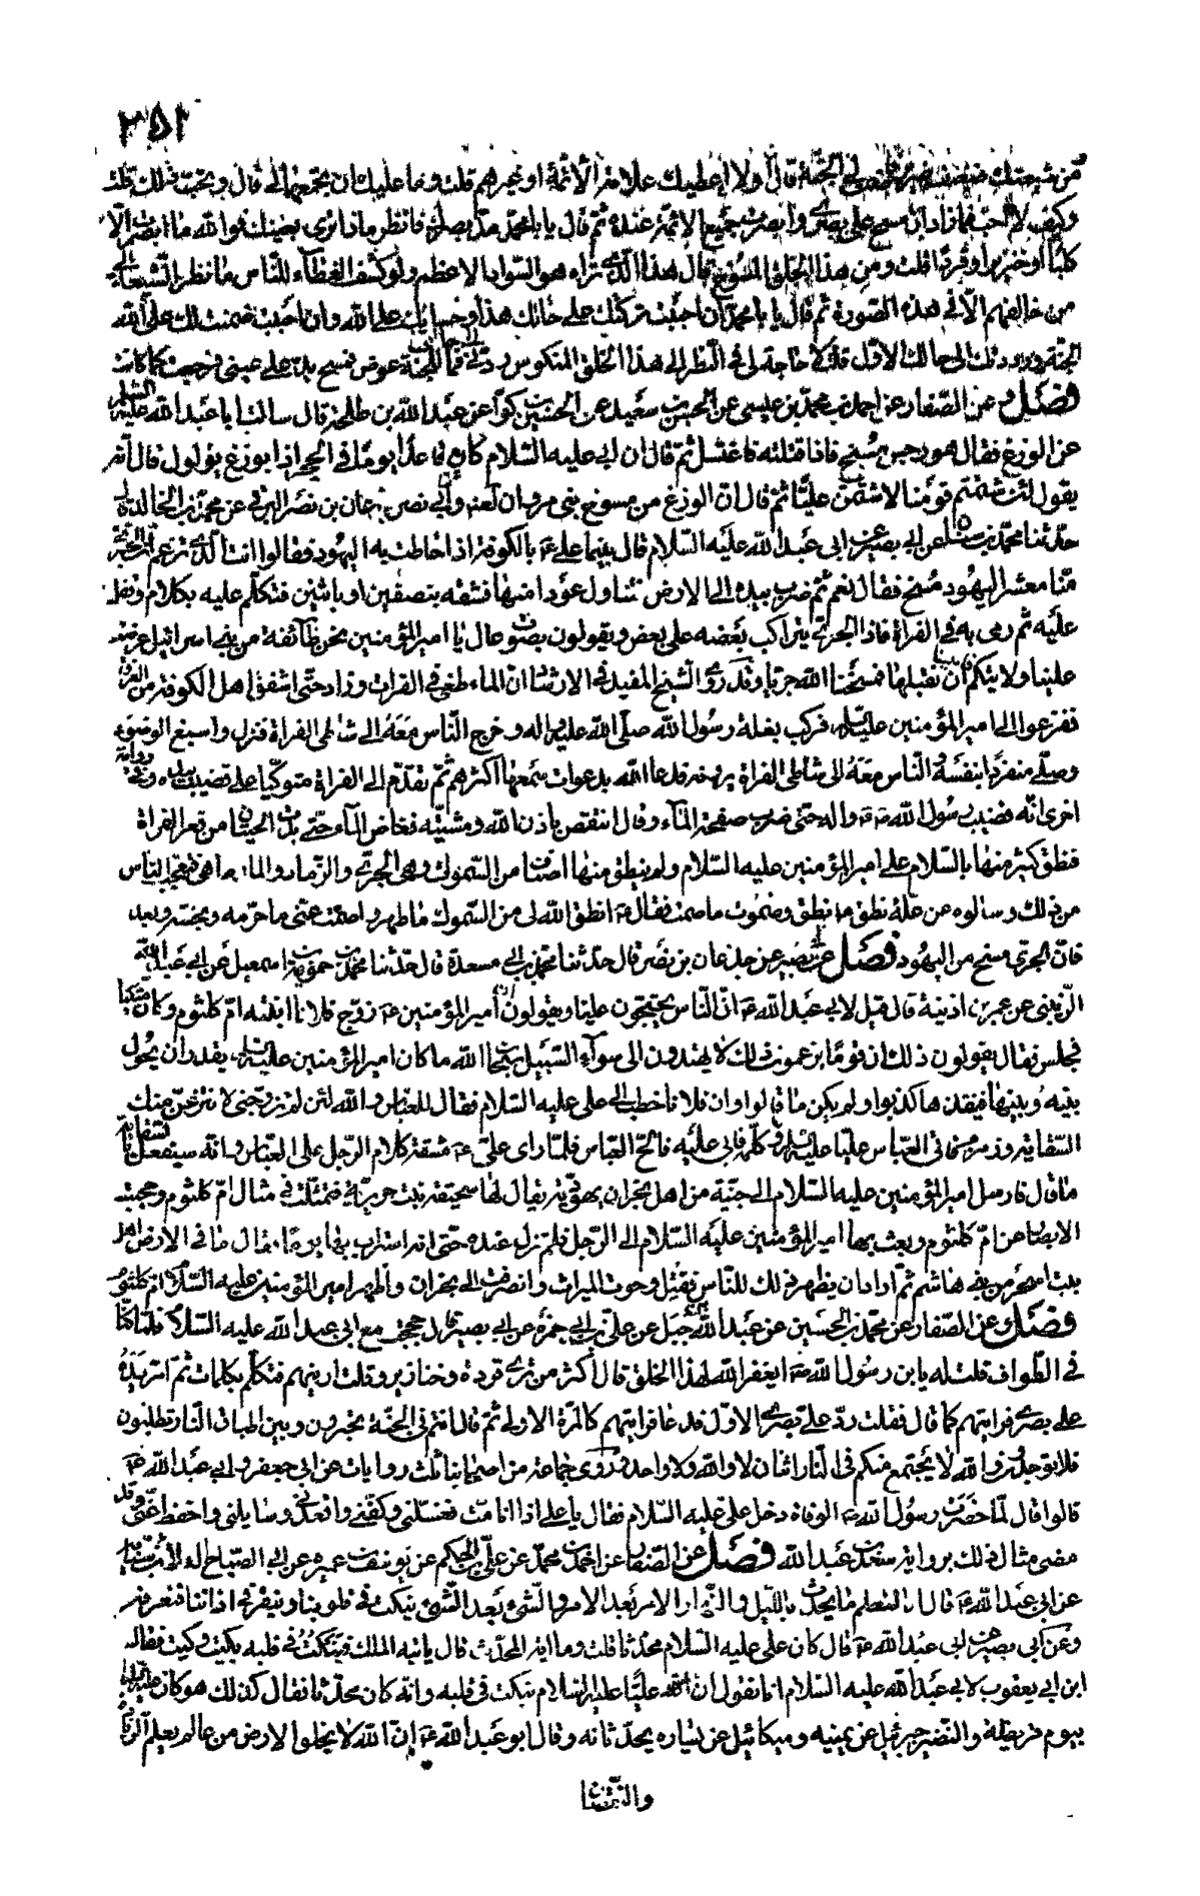 ٣٥١
من شيعتك ضعيف ضرير قلت في الجنة قال ولا اعطيك علامة الأئمة او غيرهم قلت وما عليك ان تجمعها لي قال وتحب ذلك قلت
وكيف لا احب فما زاد ان مسح على بصرى وابصرت جميع الائمة عنده ثم قال يا با محمد مد بصرك فانظر ماذا ترى بعينك فوالله ما ابصرت الا
كلبا او خنزيرا او قردا قلت ومن هذا الخلق الممسوخ قال هذا الذى تراه هو السواد الاعظم ولو كشف الغطاء للناس ما نظر الشيعة الى
من خالفهم الا في هذه الصورة ثم قال يا با محمد ان احببت تركتك على حالك هذا وحسابك على الله وان احببت ضمنت لك على الله
الجنة ورددتك الى حالك الاول قلت لا حاجة لى في النظر الى هذا الخلق المنكوس ردنى فما للجنة عوض فمسح يده على عينى فرجعت كما كانت
فصل وعن الصفار عن احمد بن محمد بن عيسى عن الحسين بن سعيد عن الحسين عن عبد الله بن طلحة قال سالت ابا عبد الله عليه السلام
عن الوزغ فقال هو رجس مسخ فاذا قتلته فاغتسل ثم قال ان ابى عليه السلام كان قاعدا يوما في الحجر اذا بوزغ يولول قال انه
يقول لئن شتمتم قومنا لاشتمن عليا ثم قال ان الوزغ من مسوخ بنى مروان لعنهم وابى نصر عن محمد
حدثنا محمد بن عن ابى بصير عن ابى عبد الله عليه السلام قال بينما على ع بالكوفة اذا احاطت به اليهود فقالوا انت الذى تزعم ان الجرى
منا معشر اليهود مسخ فقال نعم ثم ضرب بيده الى الارض فتناول عودا منها فشقه بنصفين او باثنين فتكلم عليه بكلام وتفل
عليه ثم رمى به في الفراة فاذا الجرى يتراكب بعضه على بعض ويقولون بصوت عال يا امير المؤمنين نحن طائفة من بنى اسرائيل عرضت
علينا ولايتكم ان نقبلها فمسخنا الله جريا وقد روى الشيخ المفيد في الارشاد ان الماء طغى في الفرات وزاد حتى اشفق اهل الكوفة من الغرق
ففزعوا الى امير المؤمنين عليه السلام فركب بغلة رسول الله صلى الله عليه واله وخرج الناس معه الى شاطى الفراة فنزل واسبغ الوضوء
وصلى منفردا بنفسه والناس معه الى شاطى الفراة يرونه فدعا الله بدعوات سمعها اكثرهم ثم تقدم الى الفراة متوكيا على قضيب بيده وفي رواية
اخرى انه قضيب رسول الله ص واله حتى ضرب صفحة الماء وقال انتقص باذن الله ومشيته فغاض الماء حتى بدت الحيتان من قعر الفراة
فنطق كثير منها بالسلام على امير المؤمنين عليه السلام ولم ينطق منها اصناف من السموك وهى الجرى والزمار والمار ماهى فتعجب الناس
من ذلك وسالوه عن علة نطق ما نطق وصموت ما صمت فقال ع انطق الله لى من السموك ما طهر واصمت عنى ما حرمه ونجسه وبعد
فان الجرى مسخ من اليهود فصل عن ابى بصير عن جذعان بن نصر قال حدثنا محمد بن مسعدة قال حدثنا محمد بن حمويه بن اسمعيل عن ابى عبد الله
الزينبى عن عمر بن اذينة قال قيل لابى عبد الله ع ان الناس يحتجون علينا ويقولون ان امير المؤمنين ع زوج فلانا ابنته ام كلثوم وكان متكيا
فجلس فقال يقولون ذلك ان قوما يزعمون ذلك لا يهتدون الى سواء السبيل سبحان الله ما كان امير المؤمنين عليه السلام يقدر ان يحول
بينه وبينها فينقذها كذبوا ولم يكن ما قالوا وان فلانا خطب الى على عليه السلام فقال للعباس والله لئن لم تزوجنى لانتزعن منك
السقاية وزمزم فاتى العباس عليا عليه السلام وكلمه فابى عليه فالح العباس فلما راى على ع مشقة كلام الرجل على العباس وانه سيفعل بالسقاية
ما قال فارسل امير المؤمنين عليه السلام الى جنية من اهل نجران يهودية يقال لها سحيقة بنت حريرية فتمثلت في مثال ام كلثوم وحجبت
الابصار عن ام كلثوم وبعث بها امير المؤمنين عليه السلام الى الرجل فلم تزل عنده حتى انه استراب بها يوما فقال ما في الارض اهل
بيت اسحر من بنى هاشم ثم اراد ان يظهر ذلك للناس فقتل وحوت الميراث وانصرفت الى نجران واظهر امير المؤمنين عليه السلام ام كلثوم
فصل عن الصفار عن محمد بن الحسين عن عبد الله بن جبل عن على بن ابى حمزة عن ابى بصير قال حججت مع ابى عبد الله عليه السلام فلما كنا
في الطواف قلت له يا بن رسول الله ص ايغفر الله لهذا الخلق قال اكثر من ترى قردة وخنازير وقلت ارنيهم فتكلم بكلمات ثم امر يده
على بصرى فرايتهم كما قال فقلت رد على بصرى الاول فدعا فرايتهم كالمرة الاولى ثم قال انتم في الجنة تحبرون وبين اطباق النار تطلبون
فلا توجدون والله لا يجتمع منكم في النار اثنان لا والله ولا واحد وروى جماعة من اصحابنا ثلث روايات عن ابى جعفر وابى عبد الله ع
قالوا قال لما حضرت رسول الله ص الوفاة دخل على عليه السلام فقال يا على اذا انا مت فغسلنى وكفنى واقعدنى وسايلنى واحفظ عنى وقد
مضى مثال ذلك برواية سعد بن عبد الله فصل عن الصفار عن احمد بن محمد عن على بن الحكم عن يوسف بن عميرة عن ابى الصباح
عن ابى عبد الله ع قال انا لنعلم ما يحدث بالليل والنهار الامر بعد الامر والشىء بعد الشىء ينكت في قلوبنا وينقر في اذاننا فنعرفه
وعن ابى بصير عن ابى عبد الله ع قال كان على عليه السلام محدثا قلت وما اية المحدث قال ياتيه الملك فينكت في قلبه بكيت وكيت فقال
ابن ابى يعقوب لابى عبد الله عليه السلام انا نقول ان عليا عليه السلام ينكت في قلبه وانه كان محدثا فقال كذلك هو كان عليه السلام
بيوم قريظة والنضير جبرئيل عن يمينه وميكائيل عن يساره يحدثانه وقال ابو عبد الله ع ان الله لا يخلو الارض من عالم يعلم الزيادة
والنقصان